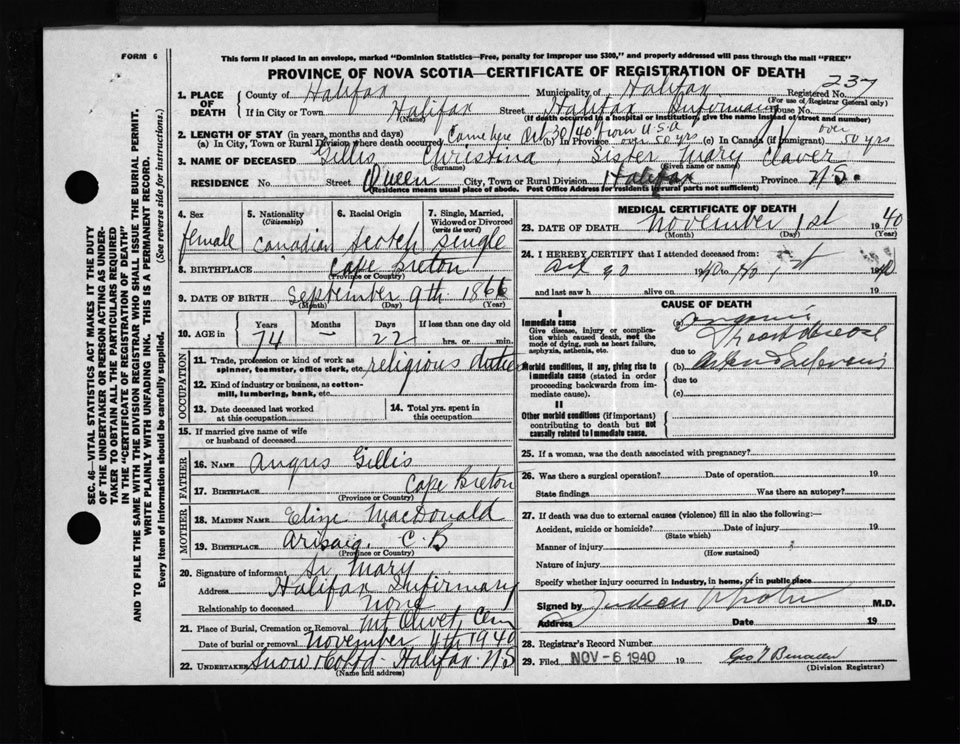 FORM 6
This form if placed in an envelope, marked "Dominion Statistics—Free, penalty for improper use $300," and properly addressed will pass through the mail "FREE"
PROVINCE OF NOVA SCOTIA—CERTIFICATE OF REGISTRATION OF DEATH
237
1. PLACE OF DEATH County of Halifax Municipality of Halifax Registered No.
(For use of Registrar General only)
If in City or Town Halifax Street Halifax Infirmary House No.
(Name) (If death occurred in a hospital or institution, give the name instead of street and number)
2. LENGTH OF STAY (in years, months and days)
(a) In City, Town or Rural Division where death occurred Came here Oct 30/40 from U.S.A (b) In Province over 50 yrs (c) In Canada (if immigrant) over 50 yrs
3. NAME OF DECEASED Gillis Christina, Sister Mary Claver
(Surname) (Given name or names)
RESIDENCE No. Street Queen City, Town or Rural Division Halifax Province N.S.
(Residence means usual place of abode. Post Office Address for residents of rural parts not sufficient)
4. Sex female
5. Nationality (Citizenship) Canadian
6. Racial Origin Scotch
7. Single, Married, Widowed or Divorced (write the word) Single
8. BIRTHPLACE Cape Breton
(Province or Country)
9. DATE OF BIRTH September 9th 1866
(Month) (Day) (Year)
10. AGE in Years 74 Months — Days 22 If less than one day old
hrs. or min.
OCCUPATION
11. Trade, profession or kind of work as spinner, teamster, office clerk, etc. religious duties
12. Kind of industry or business, as cotton-mill, lumbering, bank, etc.
13. Date deceased last worked at this occupation
14. Total yrs. spent in this occupation
15. If married give name of wife or husband of deceased
FATHER
16. NAME Angus Gillis
17. BIRTHPLACE Cape Breton
(Province or Country)
MOTHER
18. MAIDEN NAME MacDonald
19. BIRTHPLACE Arisaig, C.B
(Province or Country)
20. Signature of informant Sr Mary
Address Halifax Infirmary
Relationship to deceased None
21. Place of Burial, Cremation or Removal Mt Olivet, Cem
Date of burial or removal November 4th 1940
22. UNDERTAKER Snow & Co Ltd - Halifax N.S
(Name and address)
MEDICAL CERTIFICATE OF DEATH
23. DATE OF DEATH November 1st 1940
(Month) (Day) (Year)
24. I HEREBY CERTIFY that I attended deceased from:
19 to 1st 1940
and last saw h alive on 19
CAUSE OF DEATH
I
Immediate cause
Give disease, injury or complication which caused death, not the mode of dying, such as heart failure, asphyxia, asthenia, etc.
(a) Angina
due to
Morbid conditions, if any, giving rise to immediate cause (stated in order proceeding backwards from immediate cause).
(b)
due to
(c)
II
Other morbid conditions (if important) contributing to death but not causally related to immediate cause.
25. If a woman, was the death associated with pregnancy?
26. Was there a surgical operation? Date of operation 19
State findings Was there an autopsy?
27. If death was due to external causes (violence) fill in also the following:—
Accident, suicide or homicide? Date of injury 19
(State which)
Manner of injury
(How sustained)
Nature of injury
Specify whether injury occurred in industry, in home, or in public place
Signed by M.D.
Address Date 19
28. Registrar's Record Number
29. Filed NOV - 6 1940 19
(Division Registrar)
SEC. 46—VITAL STATISTICS ACT MAKES IT THE DUTY OF THE UNDERTAKER OR PERSON ACTING AS UNDERTAKER TO OBTAIN ALL THE PARTICULARS REQUIRED IN THE "CERTIFICATE OF REGISTRATION OF DEATH"
AND TO FILE THE SAME WITH THE DIVISION REGISTRAR WHO SHALL ISSUE THE BURIAL PERMIT.
WRITE PLAINLY WITH UNFADING INK. THIS IS A PERMANENT RECORD.
Every item of information should be carefully supplied. (See reverse side for instructions.)